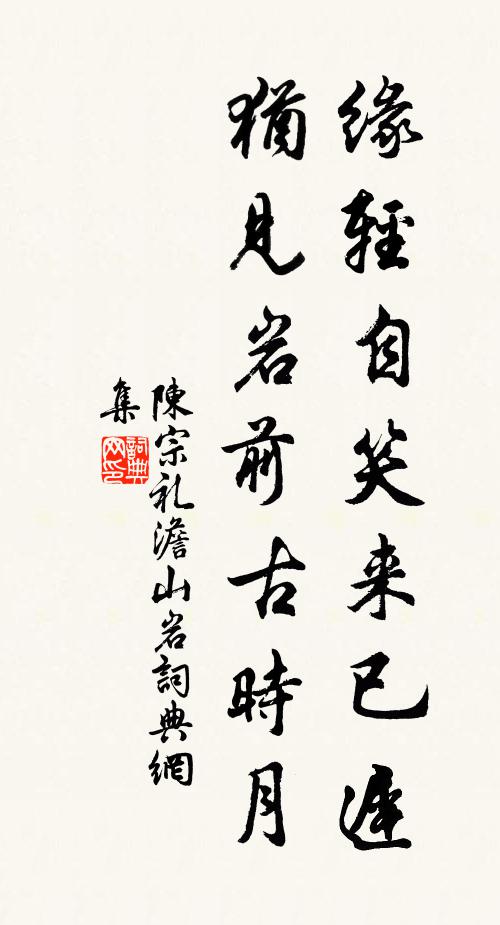 緣輕自笑来已遲
猶見岩前古時月
陳宗礼澹山岩詞典網
集
詞典网印